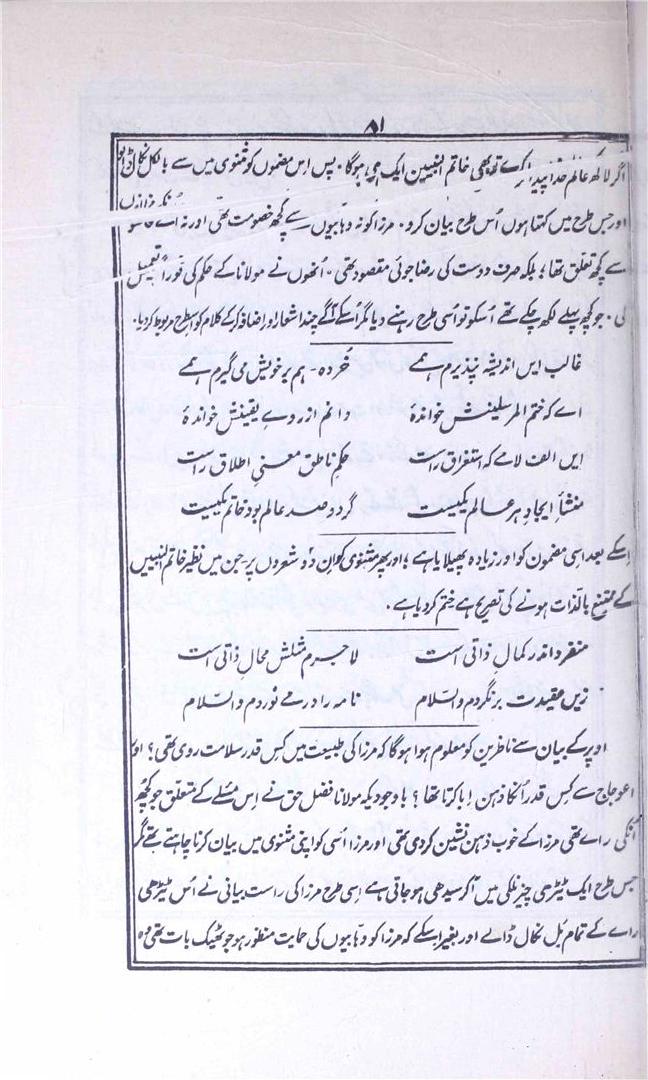 ۸۱
اگر لاکھ عالم خدا پیدا کرے تو بھی خاتم النبیین ایک ہی ہوگا۔ پس اِس مضمون کو مثنوی میں سے بالکل نکال ڈالو
اور جس طرح میں کہتا ہوں اُس طرح بیان کرو۔ مرزا کو نہ وہابیوں سے کچھ خصومت تھی اور نہ اُنکے
سے کچھ تعلق تھا؛ بلکہ صرف دوست کی رضا جوئی مقصود تھی۔ اُنھوں نے مولانا کے حکم کی فوراً تعمیل
کی۔ جو کچھ پہلے لکھ چکے تھے اُسکو تو اُسی طرح رہنے دیا مگر اُسکے آگے چند اشعار اور اضافہ کر کے کلام کو اسطرح مربوط کر دیا۔
غالب ایں اندیشہ نپذیرم ہمے خُردہ۔ ہم بر خویش می گیرم ہمے
اے کہ ختم المرسلینش خواندۂ دانم از روے یقینش خواندۂ
ایں الف لامے کہ استغراق راست حکمِ ناطق معنیِ اطلاق راست
منشأِ ایجادِ ہر عالم یکیست گر دو صد عالم بود خاتم یکیست
اِسکے بعد اسی مضمون کو اور زیادہ پھیلایا ہے؛ اور پھر مثنوی کو اِن دو شعروں پر جن میں نظیرِ خاتم النبیین
کے ممتنع بالذات ہونے کی تصریح ہے ختم کر دیا ہے۔
منفرد اندر کمالِ ذاتی است لاجرم مثلش محالِ ذاتی است
زیں عقیدت برنگردم والسلام نامہ را در مے نوردم والسلام
اوپر کے بیان سے ناظرین کو معلوم ہوا ہوگا کہ مرزا کی طبیعت میں کس قدر سلامت روی تھی؟ اور
اعوجاج سے کِس قدر اُنکا ذہن اِبا کرتا تھا؟ باوجودیکہ مولانا فضل حق نے اِس مسئلے کے متعلق جو کچھ
اُنکی راے تھی مرزا کے خوب ذہن نشین کر دی تھی اور مرزا اُسی کو اپنی مثنوی میں بیان کرنا چاہتے تھے مگر
جس طرح ایک ٹیڑھی چیز نلکی میں آ کر سیدھی ہو جاتی ہے اِسی طرح مرزا کی راست بیانی نے اُس ٹیڑھی
راے کے تمام بَل نکال ڈالے اور بغیر اِسکے کہ مرزا کو وہابیوں کی حمایت منظور ہو جو ٹھیک بات تھی وہ